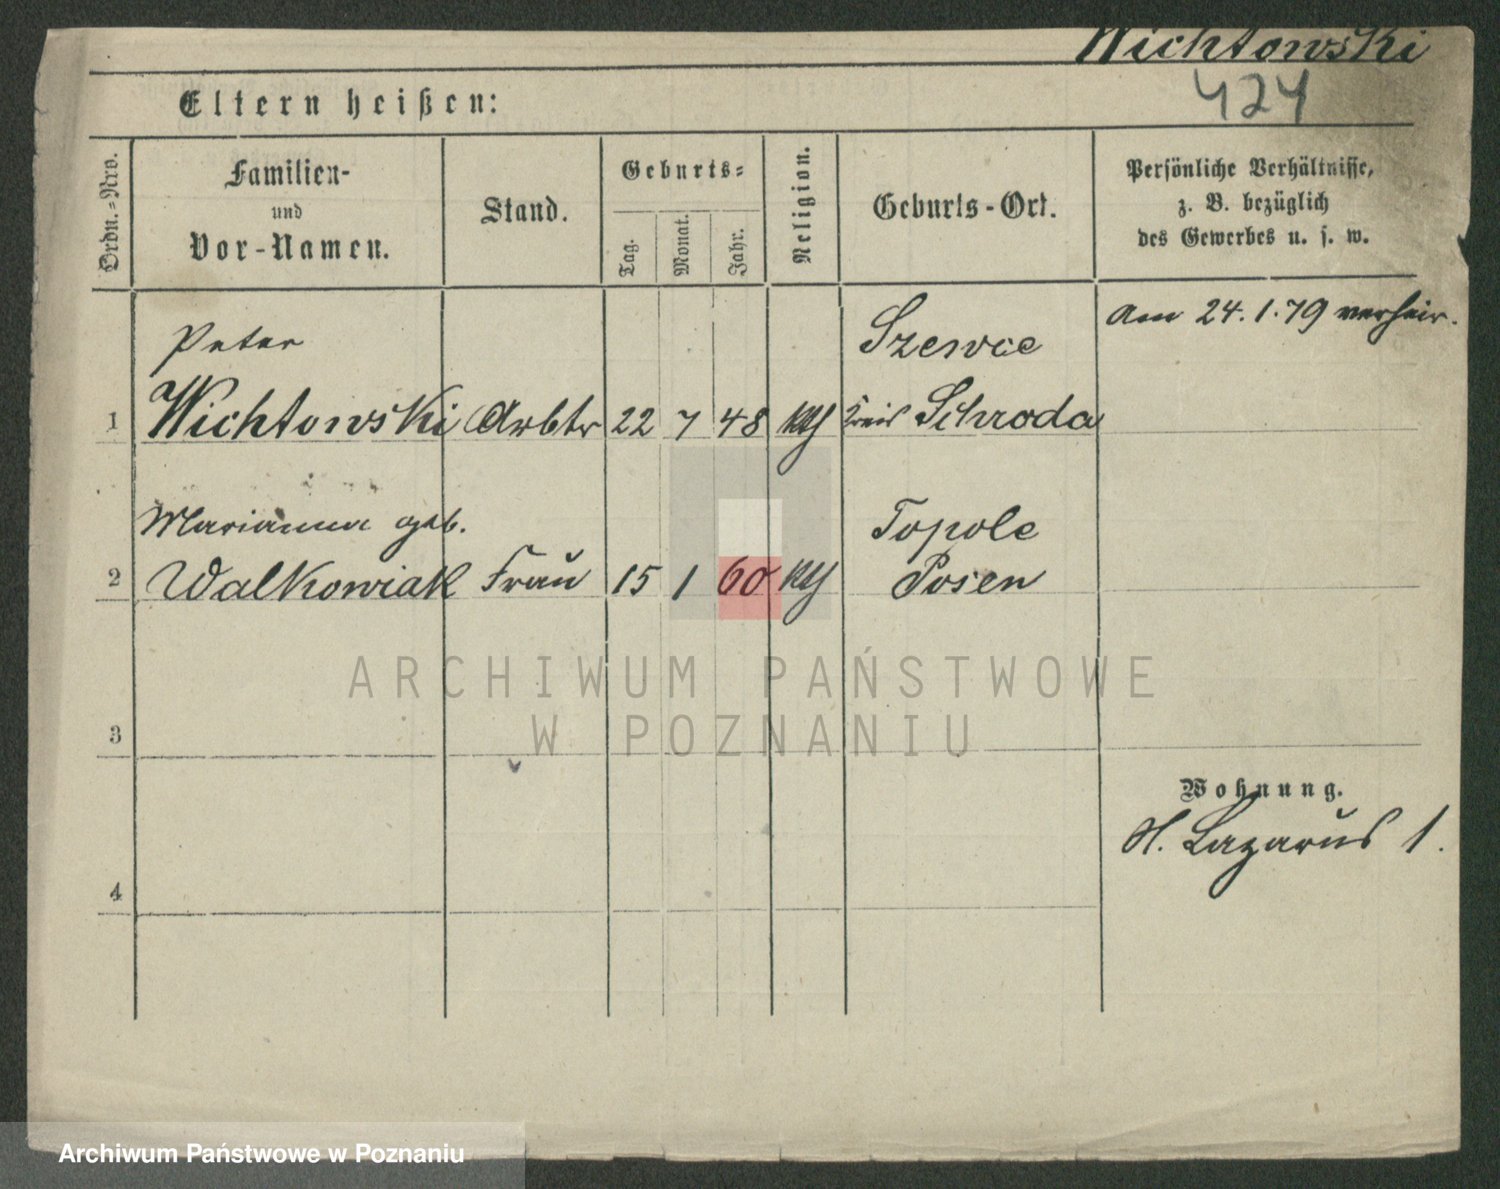 Wichtowski
424
Eltern heißen:
Ordn.=Nro.
Familien-
und
Vor-Namen.
Stand.
Geburts=
Tag.
Monat.
Jahr.
Religion.
Geburts-Ort.
Persönliche Verhältnisse,
z. B. bezüglich
des Gewerbes u. s. w.
Am 24.1.79 verheir.
Peter
Szewce
1 Wichtowski Arbtr 22 7 48 kth Kreis Schroda
Marianna geb.
Topole
2 Walkowiak Frau 15 1 60 kth Posen
3
Wohnung.
St. Lazarus 1.
4
ARCHIWUM PAŃSTWOWE
W POZNANIU
Archiwum Państwowe w Poznaniu